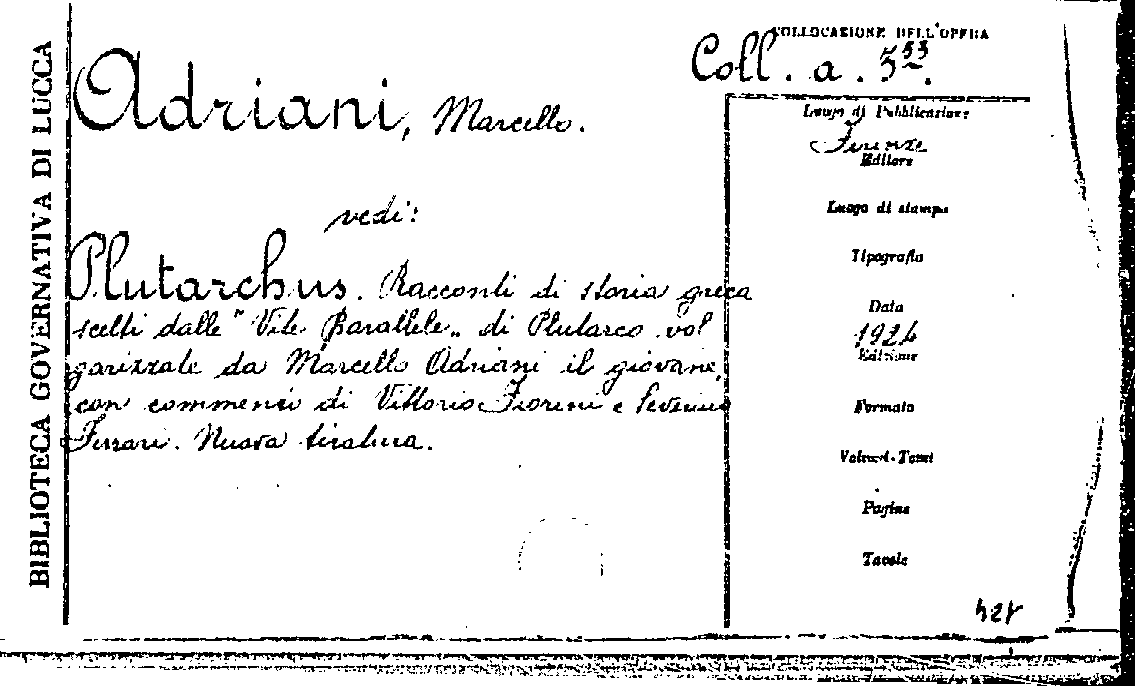 BIBLIOTECA GOVERNATIVA DI LUCCA
COLLOCAZIONE DELL'OPERA
Coll. a. 5 53.
Adriani, Marcello.
vedi:
Plutarchus. Racconti di storia greca
scelti dalle "Vite Parallele" di Plutarco vol
garizzate da Marcello Adriani il giovane,
con commento di Vittorio Fiorini e Severino
Ferrari. Nuova tiratura.
Luogo di Pubblicazione
Firenze
Editore
Luogo di stampa
Tipografia
Data
1924
Edizione
Formato
Volumi-Tomi
Pagine
Tavole